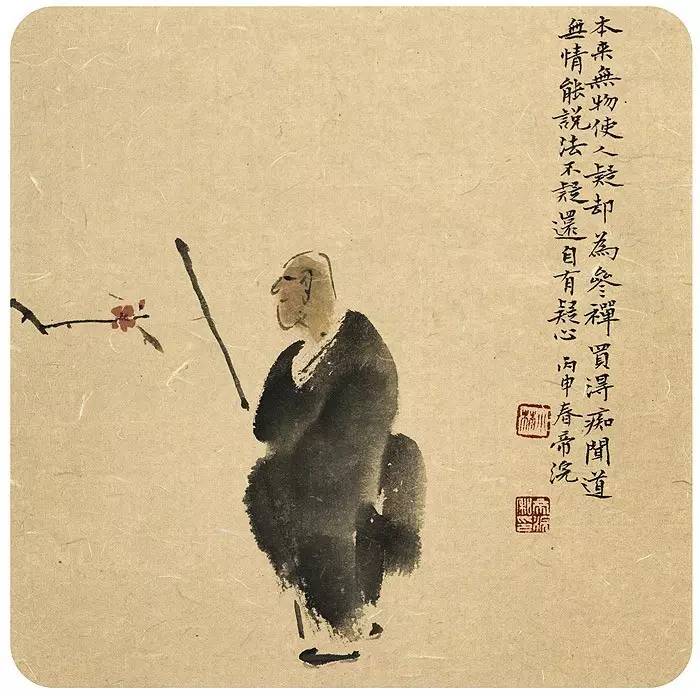 本来無物使人疑却為參禪買得痴聞道
無情能説法不疑還自有疑心 丙申春帝浣
小林